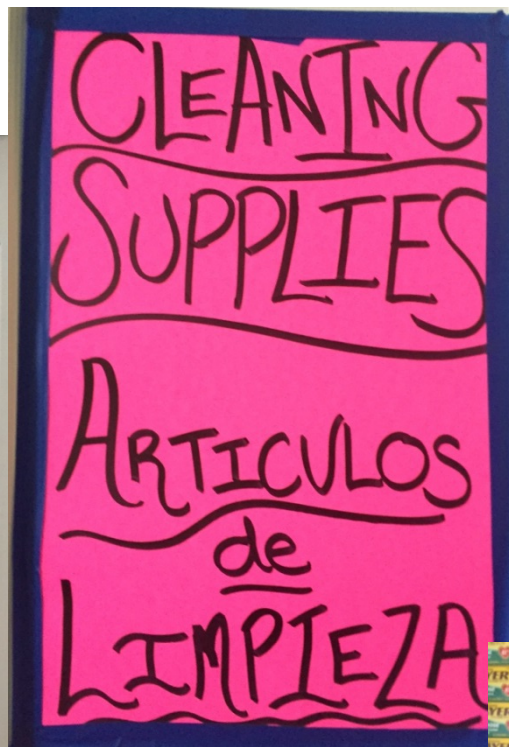 CLEANING
SUPPLIES
ARTICULOS
de
LIMPIEZA